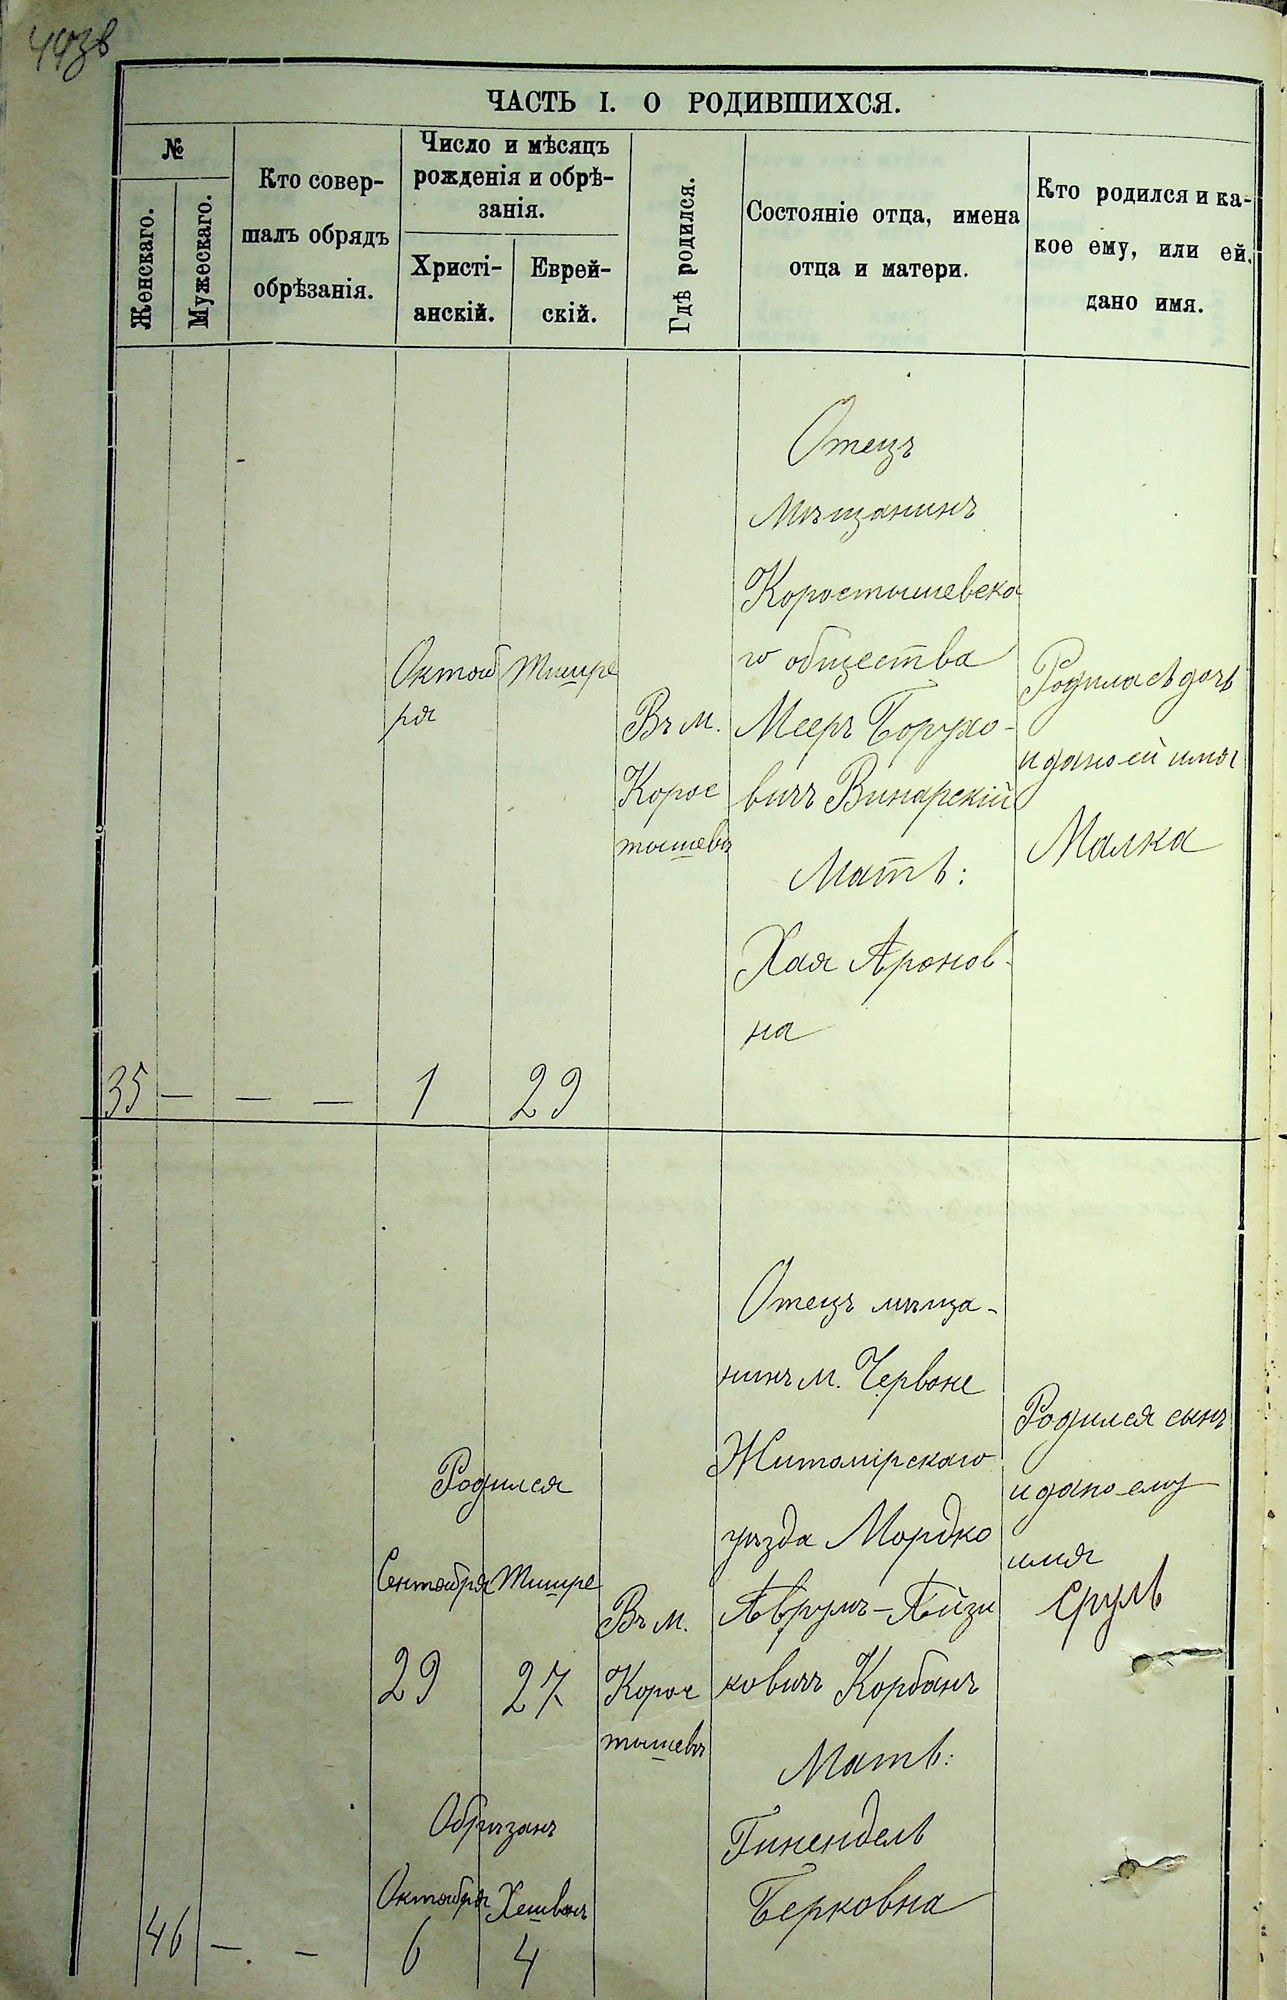 44зв
ЧАСТЬ I. О РОДИВШИХСЯ.
№
Женскаго.
Мужескаго.
Кто совер-
шалъ обрядъ
обрѣзанія.
Число и мѣсяцъ
рожденія и обрѣ-
занія.
Христі-
анскій.
Еврей-
скій.
Гдѣ родился.
Состояніе отца, имена
отца и матери.
Кто родился и ка-
кое ему, или ей,
дано имя.
35
—
— —
Октоб
ря
1
Тишре
29
Въ м.
Корос
тышевѣ
Отецъ
Мѣщанинъ
Коростышевска
го общества
Мееръ Борухо-
вичъ Винарскій
Мать:
Хая Аронов-
на
Родилась дочь
и дано ей имя
Малка
46
— —
Родился
Сентября Тишре
29 27
Обрѣзанъ
Октября Хешвонъ
6 4
Въ м.
Корос
тышевѣ
Отецъ мѣща-
нинъ м. Червоне
Житомірскаго
уѣзда Мордко
Аврумъ-Айзи
ковичъ Корбанъ
Мать:
Гинендель
Берковна
Родился сынъ
и дано ему
имя
Сруль